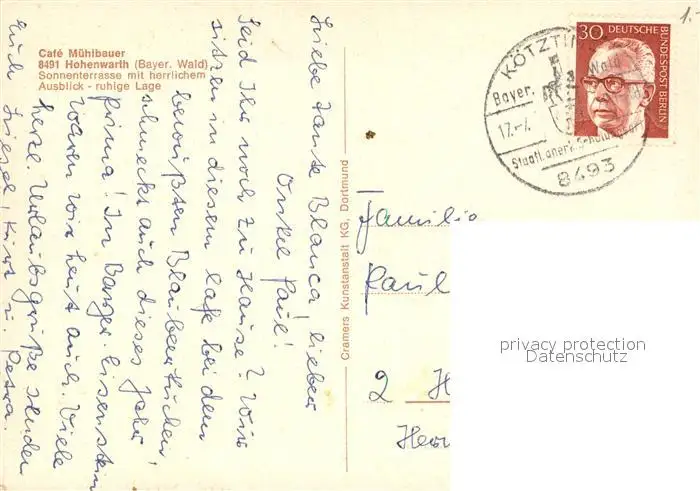 Café Mühlbauer
8491 Hohenwarth (Bayer. Wald)
Sonnenterrasse mit herrlichem
Ausblick - ruhige Lage
Liebe Tante Blanca! lieber
Onkel Paul!
Seid Ihr noch zu Hause? Wir
sitzen in diesem Cafe bei dem
bewußten Blaubeerkuchen
schmeckt auch dieses Jahr
prima! In Bayer. Eisenstein
waren wir heut auch. Viele
herzl. Urlaubsgrüße senden
Euch Liesel, Kurt u. Petra.
Cramers Kunstanstalt KG, Dortmund
KÖTZTI
Bayer. Wald
17.-7.
Staatl. anerk.
8493
30 DEUTSCHE
BUNDESPOST BERLIN
1.-
Familie
Paul
2 H
Her
privacy protection
Datenschutz